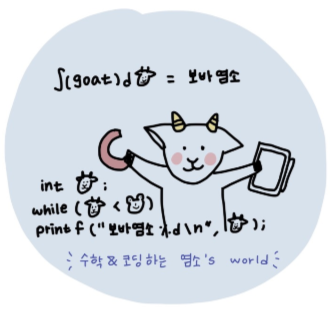 ∫(goat)d🐮 = 보바 염소
int 🐮;
while (🐮 < 🐭)
printf("보바염소 %d\n", 🐮);
수학 & 코딩하는 염소's world